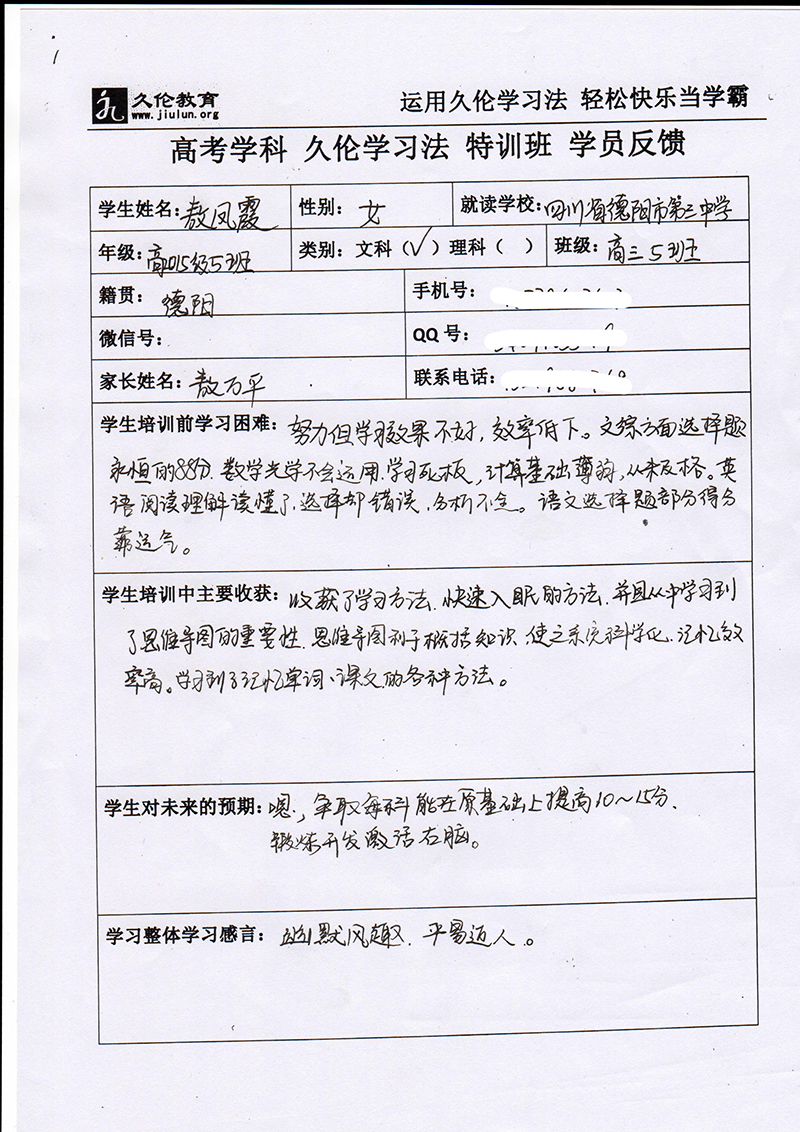 1
久伦教育
www.jiulun.org
运用久伦学习法 轻松快乐当学霸
高考学科 久伦学习法 特训班 学员反馈
学生姓名: 敖凤霞 性别: 女 就读学校: 四川省德阳市第三中学
年级: 高2015级5班 类别: 文科（√）理科（ ） 班级: 高三5班
籍贯: 德阳 手机号:
微信号: QQ号:
家长姓名: 敖万平 联系电话:
学生培训前学习困难: 努力但学习效果不好，效率低下。文综方面选择题
永恒的88分，数学光学不会运用，学习死板，计算基础薄弱，从未及格。英
语阅读理解读懂了，选择却错误，分析不全。语文选择题部分得分
靠运气。
学生培训中主要收获: 收获了学习方法，快速入眠的方法，并且从中学习到
了思维导图的重要性，思维导图利于概括知识，使之系统科学化，记忆效
率高。学习到了记忆单词、课文的各种方法。
学生对未来的预期: 嗯，争取每科能在原基础上提高10～15分，
锻炼开发激活右脑。
学习整体学习感言: 幽默风趣，平易近人。